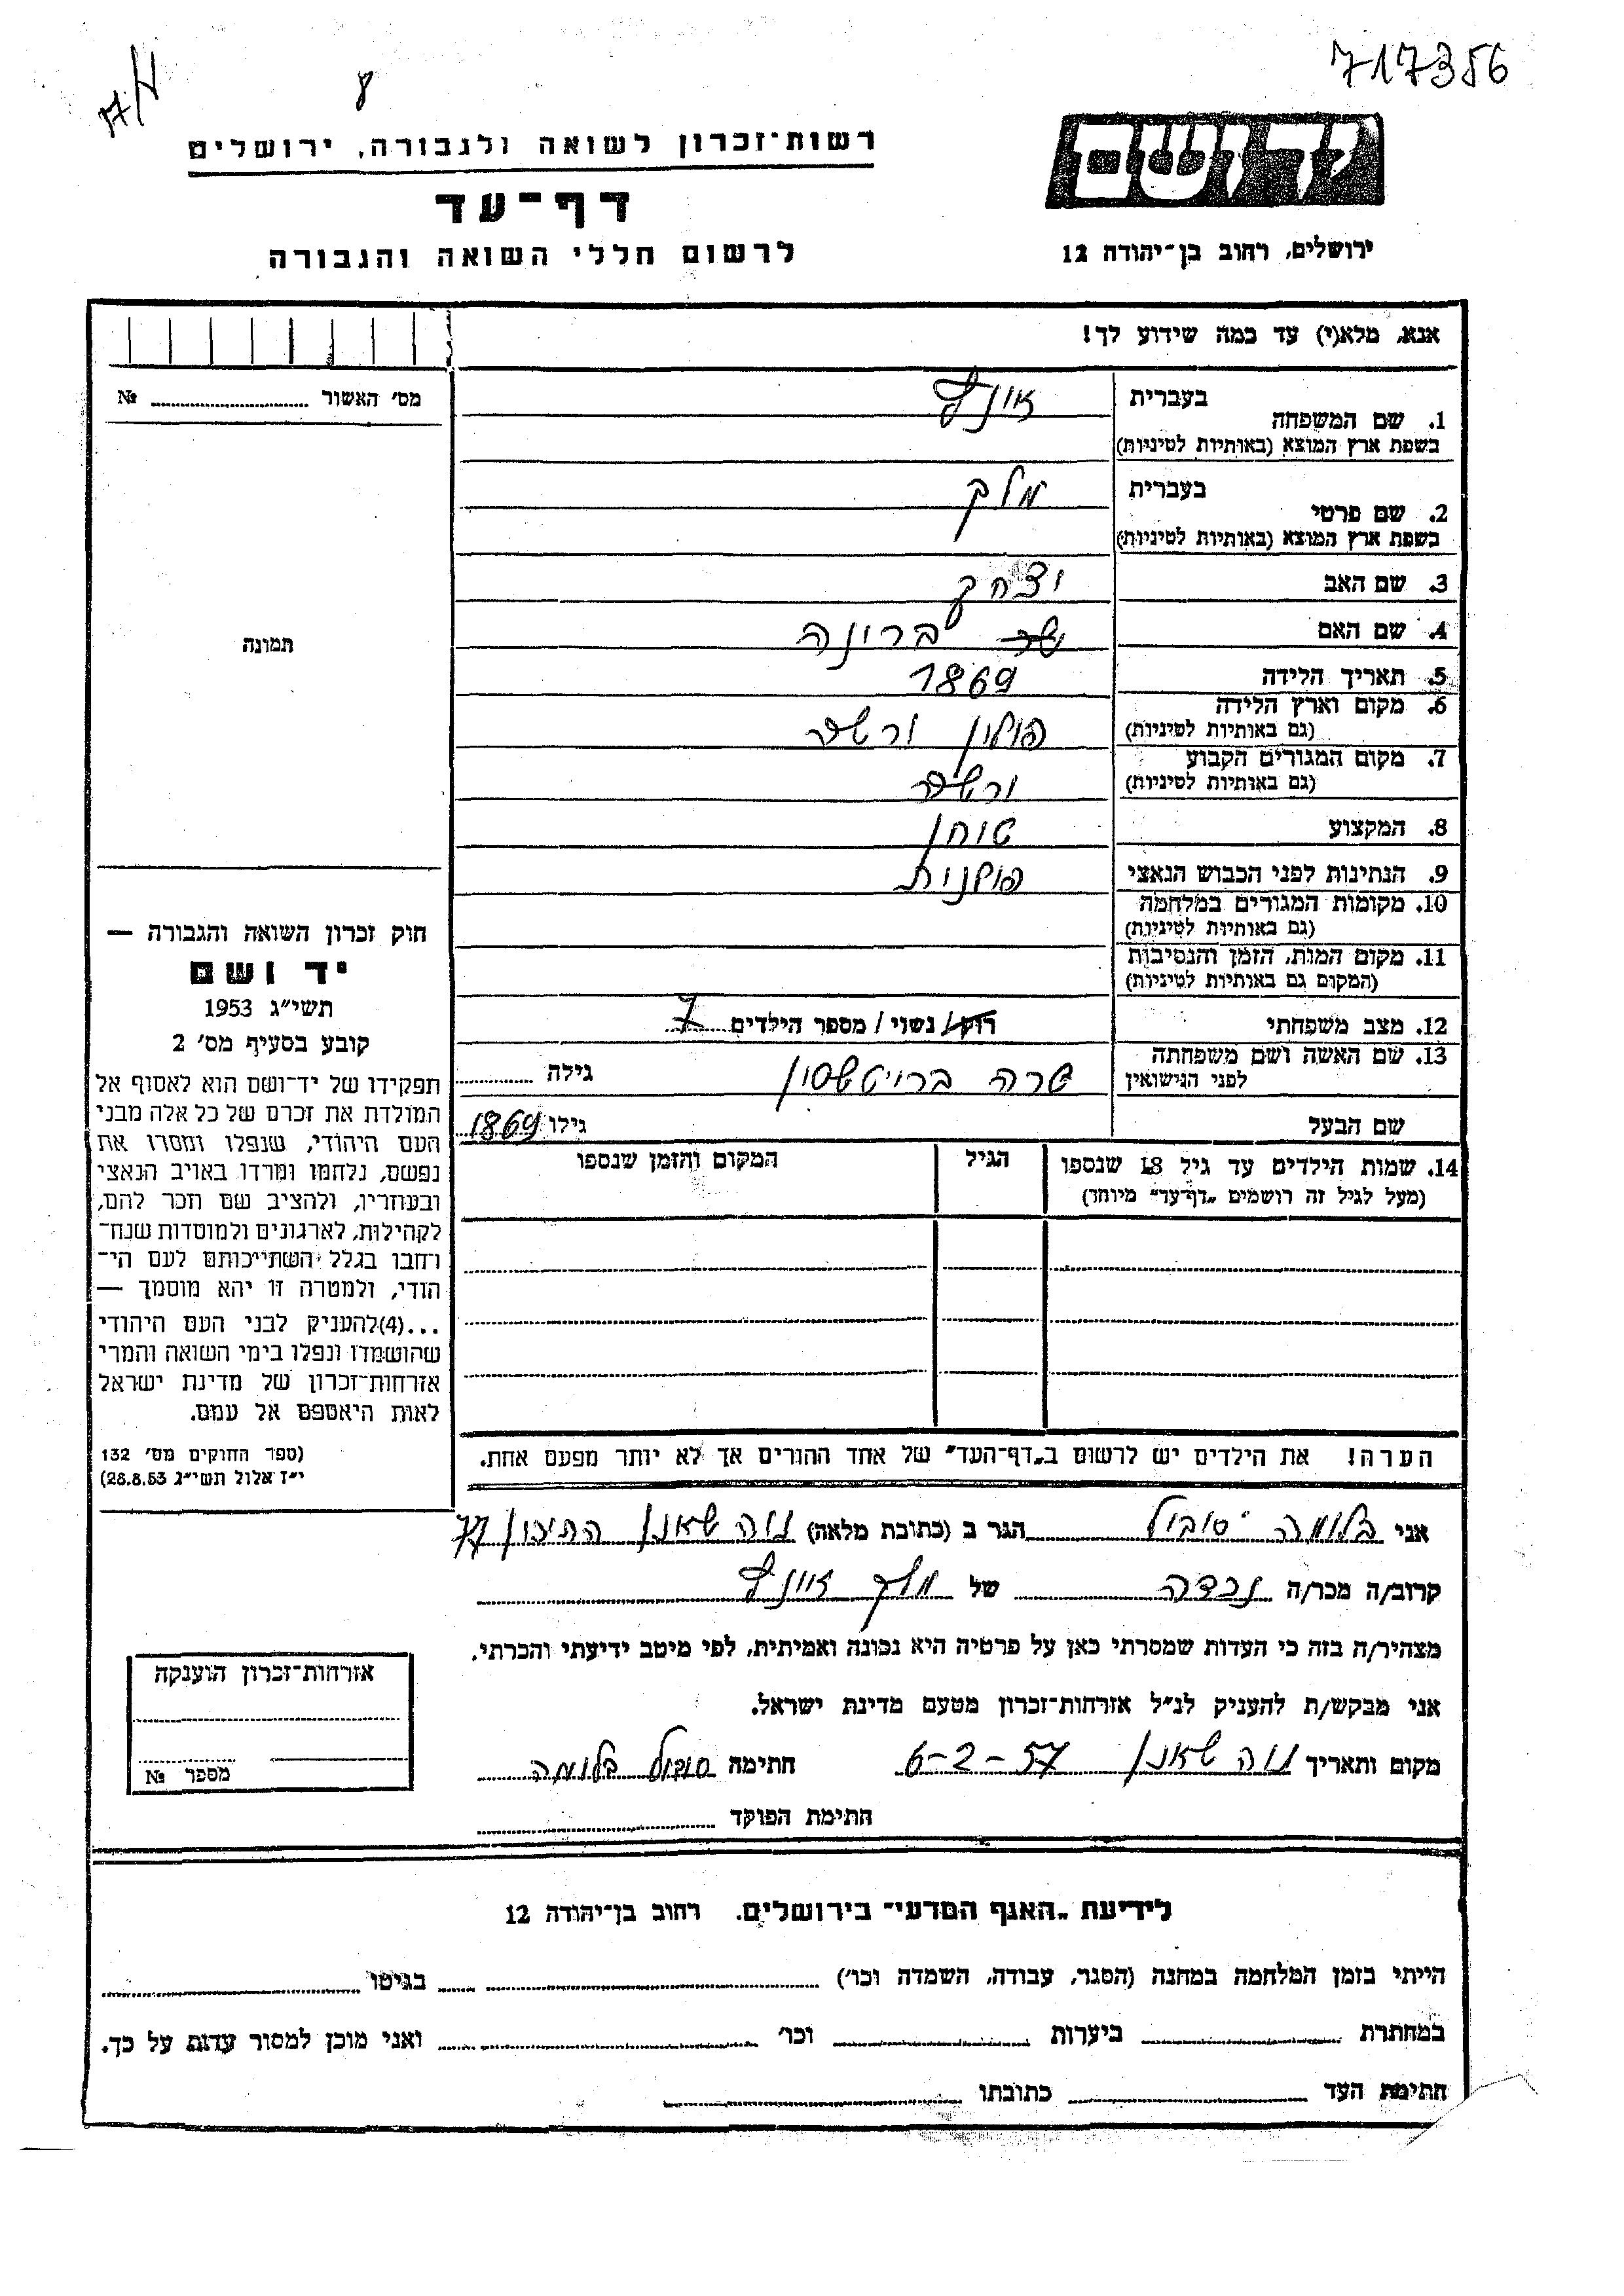 717356
רשות־זכרון לשואה ולגבורה, ירושלים
דף־עד
לרשום חללי השואה והגבורה
יד ושם
ירושלים, רחוב בן־יהודה 12
אנא, מלא(י) עד כמה שידוע לך!
מס' האשור № 
1. שם המשפחה בעברית
בשפת ארץ המוצא (באותיות לטיניות)
2. שם פרטי בעברית מלך
בשפת ארץ המוצא (באותיות לטיניות)
3. שם האב יצחק
4. שם האם ברונה
5. תאריך הלידה 1869
6. מקום וארץ הלידה פולין ורשה
(גם באותיות לטיניות)
7. מקום המגורים הקבוע ורשה
(גם באותיות לטיניות)
8. המקצוע טוחן
9. הנתינות לפני הכבוש הנאצי פולנית
10. מקומות המגורים במלחמה
(גם באותיות לטיניות)
11. מקום המות, הזמן והנסיבות
(המקום גם באותיות לטיניות)
12. מצב משפחתי רווק / נשוי / מספר הילדים 7
13. שם האשה ושם משפחתה שרה גילה
לפני הנישואין
שם הבעל גילו 1869
14. שמות הילדים עד גיל 18 שנספו הגיל המקום והזמן שנספו
(מעל לגיל זה רושמים „דף־עד” מיוחד)
הערה! את הילדים יש לרשום ב„דף־העד” של אחד ההורים אך לא יותר מפעם אחת.
תמונה
חוק זכרון השואה והגבורה —
יד ושם
תשי״ג 1953
קובע בסעיף מס' 2
תפקידו של יד־ושם הוא לאסוף אל
המולדת את זכרם של כל אלה מבני
העם היהודי, שנפלו ומסרו את
נפשם, נלחמו ומרדו באויב הנאצי
ובעוזריו, ולהציב שם וזכר להם,
לקהילות, לארגונים ולמוסדות שנח־
רחבו בגלל השתייכותם לעם הי־
הודי, ולמטרה זו יהא מוסמך —
...(4) להעניק לבני העם היהודי
שהושמדו ונפלו בימי השואה והמרי
אזרחות־זכרון של מדינת ישראל
לאות היאספם אל עמם.
(ספר החוקים מס' 132
י״ז אלול תשי״ג 28.8.53)
אני בלומה סובול הגר ב (כתובת מלאה) נוה שאנן התיכון 77
קרוב/ה מכר/ה נכדה של מלך
מצהיר/ה בזה כי העדות שמסרתי כאן על פרטיה היא נכונה ואמיתית, לפי מיטב ידיעתי והכרתי.
אני מבקש/ת להעניק לנ״ל אזרחות־זכרון מטעם מדינת ישראל.
מקום ותאריך נוה שאנן 6-2-57 חתימה סובול בלומה
חתימת הפוקד
אזרחות־זכרון הוענקה
מספר №
לידיעת „האגף המדעי” בירושלים. רחוב בן־יהודה 12
הייתי בזמן המלחמה במחנה (הסגר, עבודה, השמדה וכו') בגיטו
במחתרת ביערות וכו' ואני מוכן למסור עדות על כך.
חתימת העד כתובתו